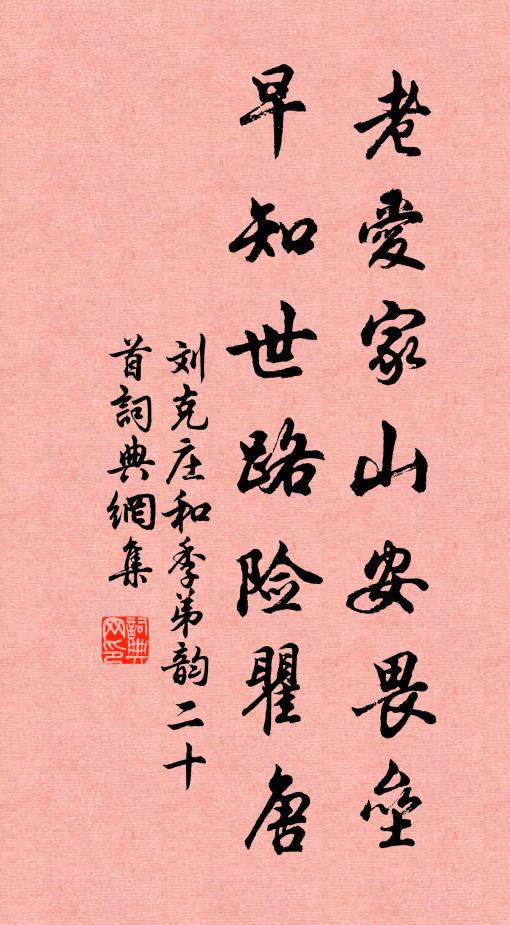 老愛家山安畏壘
早知世路险瞿唐
刘克庄和季弟韵二十
首詞典網集
詞典网印